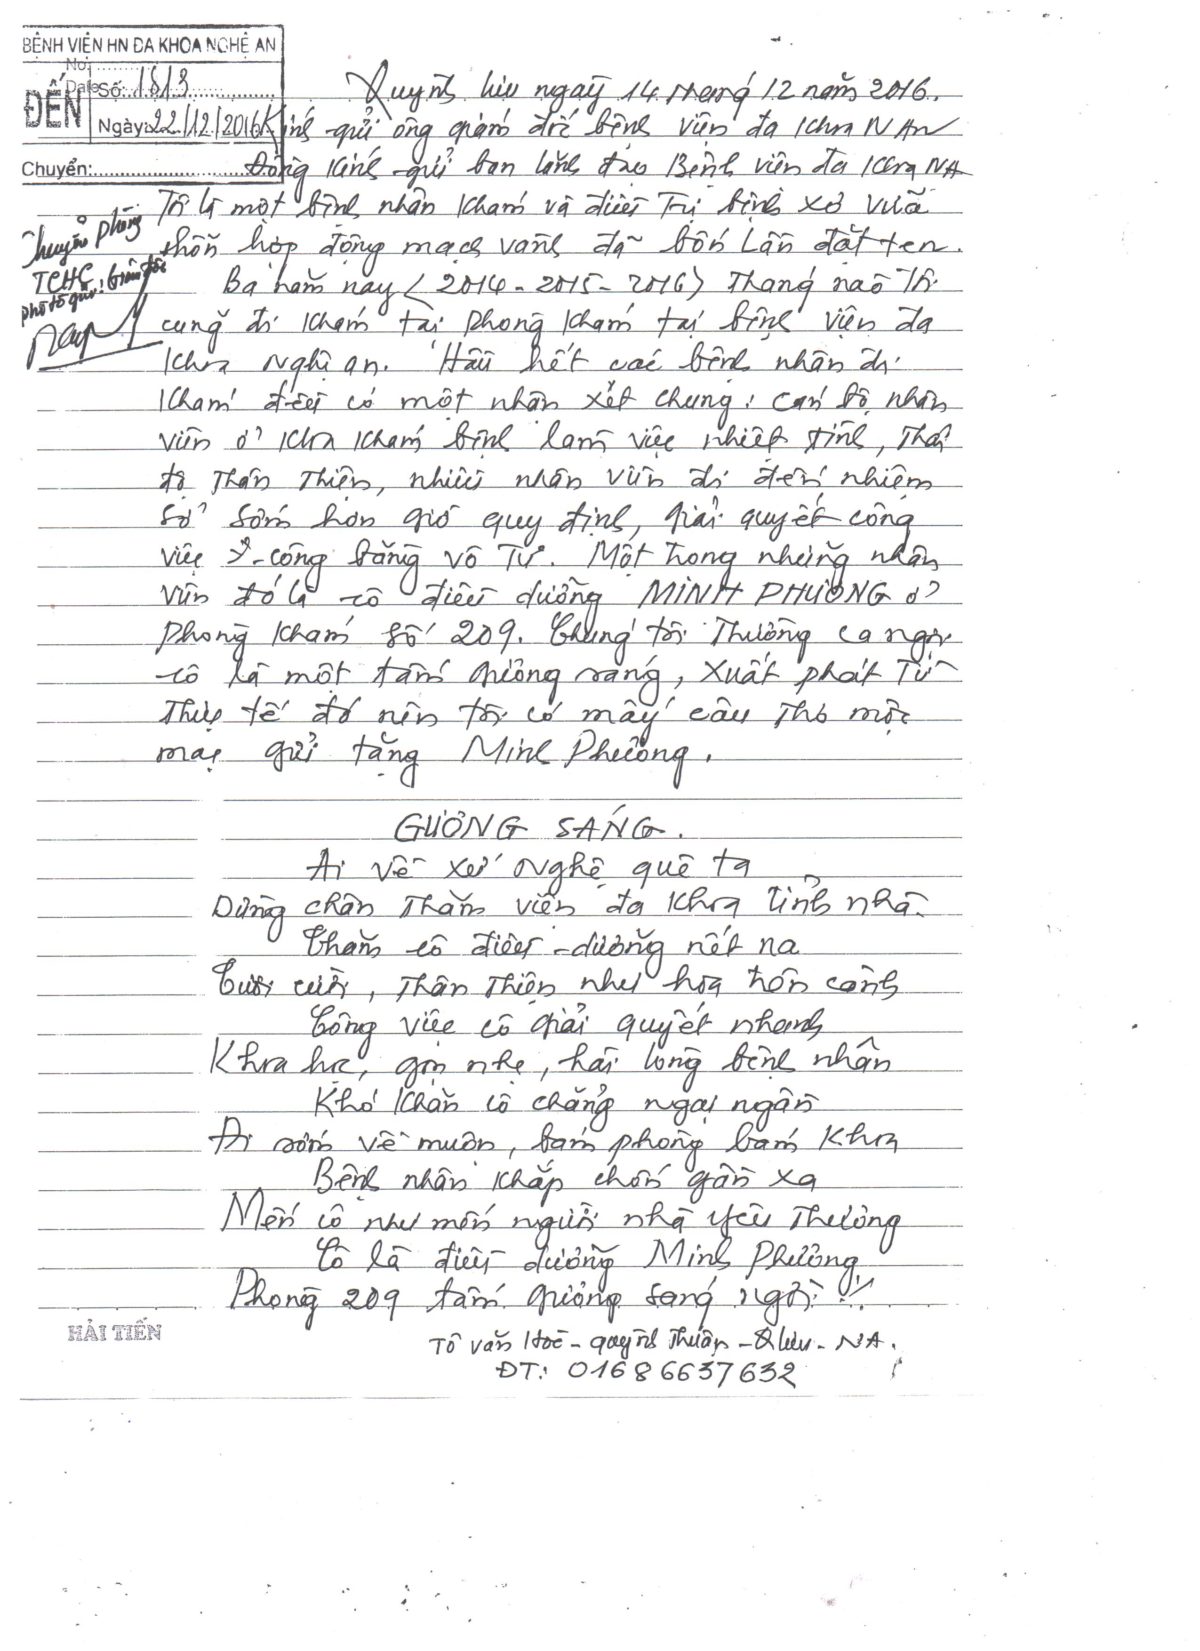 BỆNH VIỆN HN ĐA KHOA NGHỆ AN
No:
Date
ĐẾN
Số: 1813
Ngày: 22/12/2016
Chuyển:
Chuyển phòng
TCHC
phô tô gửi: Giám đốc
Quỳnh lưu ngày 14 tháng 12 năm 2016.
Kính gửi ông giám đốc bệnh viện đa khoa N An
Đồng kính gửi ban lãnh đạo Bệnh viện đa khoa NA
Tôi là một bệnh nhân khám và điều trị bệnh xơ vữa
hỗn hợp động mạch vành đã bốn lần đặt ten.
Ba năm nay (2014 - 2015 - 2016) tháng nào tôi
cũng đi khám tại phòng khám tại bệnh viện đa
khoa nghệ an. Hầu hết các bệnh nhân đi
khám đều có một nhận xét chung: cán bộ nhân
viên ở khoa khám bệnh làm việc nhiệt tình, thái
độ thân thiện, nhiều nhân viên đi đến nhiệm
sở sớm hơn giờ quy định, giải quyết công
việc công bằng vô tư. Một trong những nhân
viên đó là cô điều dưỡng MINH PHƯƠNG ở
phòng khám số 209. Chúng tôi thường ca ngợi
cô là một tấm gương sáng, xuất phát từ
thực tế đó nên tôi có mấy câu thơ mộc
mạc gửi tặng Minh Phương.
GƯƠNG SÁNG.
Ai về xứ nghệ quê ta
Dừng chân thăm viện đa khoa tỉnh nhà.
Thăm cô điều - dưỡng nết na
Tươi cười, thân thiện như hoa trên cành
Công việc cô giải quyết nhanh
Khoa học, gọn nhẹ, hài lòng bệnh nhân
Khó khăn cô chẳng ngại ngần
Đi sớm về muộn, bám phòng bám khoa
Bệnh nhân khắp chốn gần xa
Mến cô như mến người nhà yêu thương
Cô là điều dưỡng Minh Phương
Phòng 209 tấm gương sáng ngời!!!
HẢI TIẾN
Tô Văn Hoè - Quỳnh Thuận - Q lưu - NA.
ĐT: 01686637632